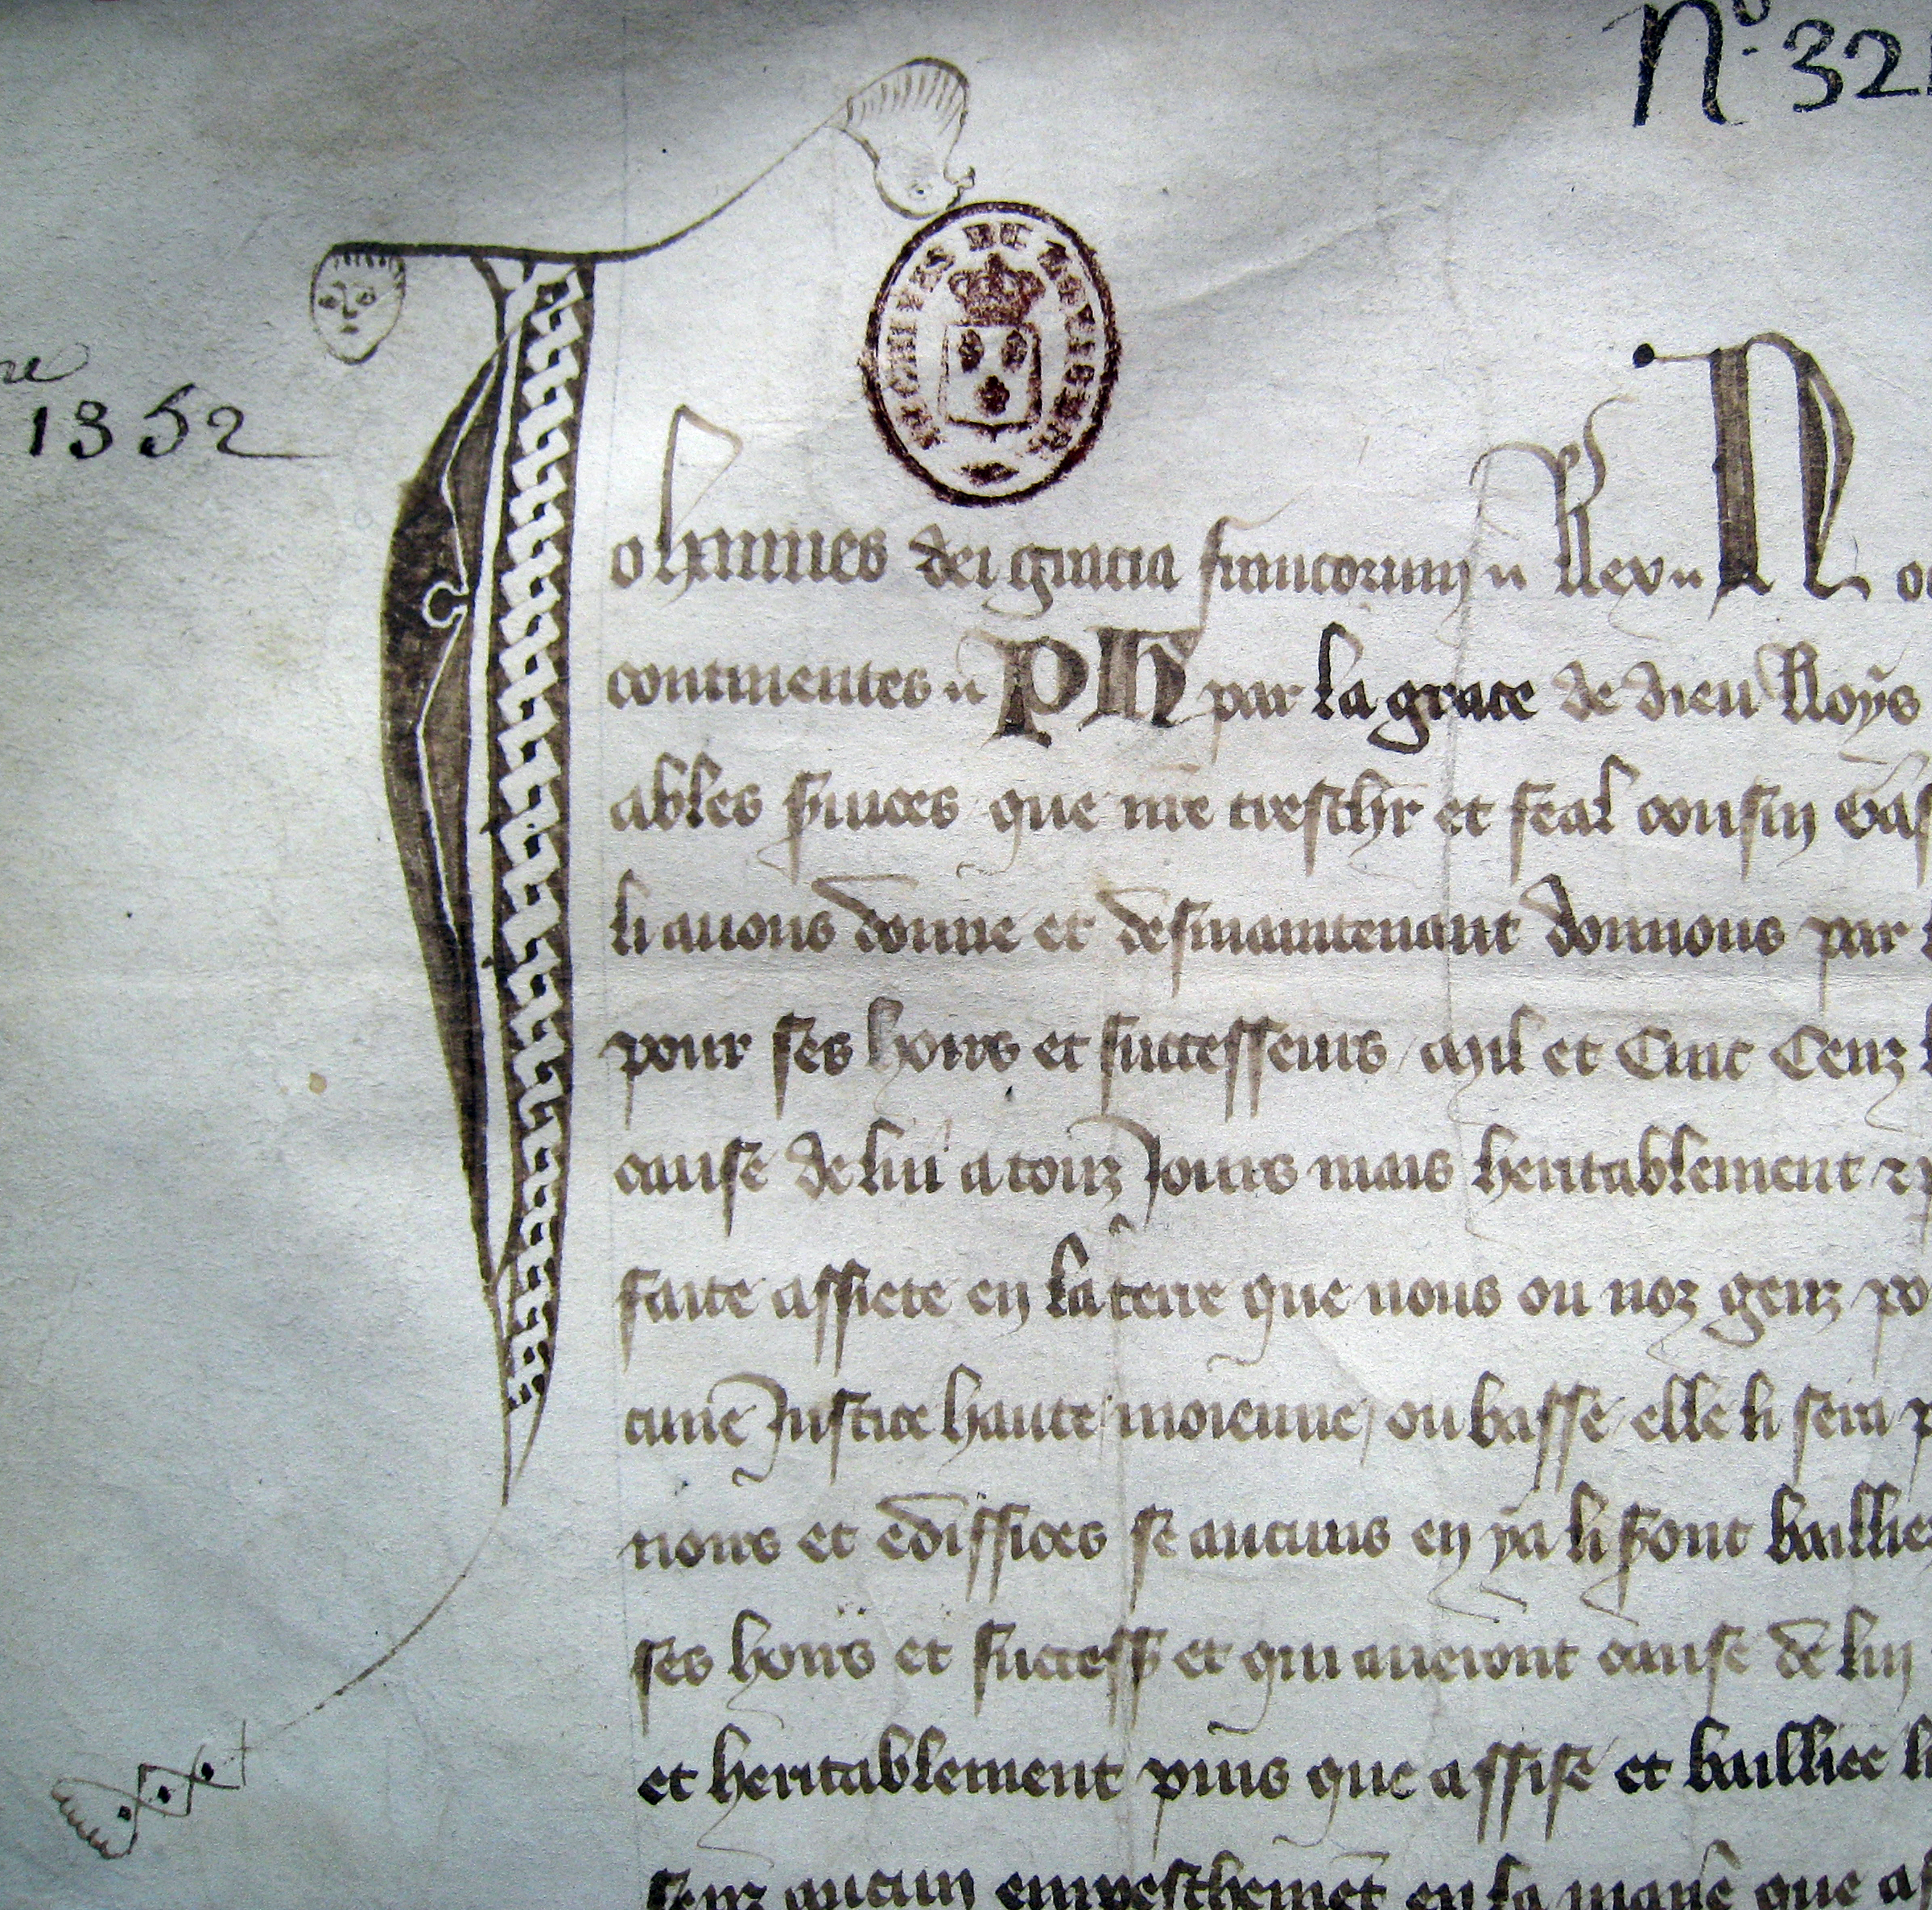 Nº 321
1352
Johannes dei gracia francorum Rex N
continentes Ph par la grace de dieu Roys
ables que nre treschr et feal cousin Gas
li avons donne et desmaintenant donnons par
pour ses hoirs et successeurs mil et Cinc Cenz
cause de lui a touz Jours mais heritablement et
faite assiete en la terre que nous ou noz genz po
cune Justice haute moienne ou basse elle li sera p
nours et ediffices se aucuns en ya li sont baillie
ses hoirs et success et qui aueront cause de luy
et heritablement puis que assise et bailliee li
senz aucun empeschemet en la manie que as